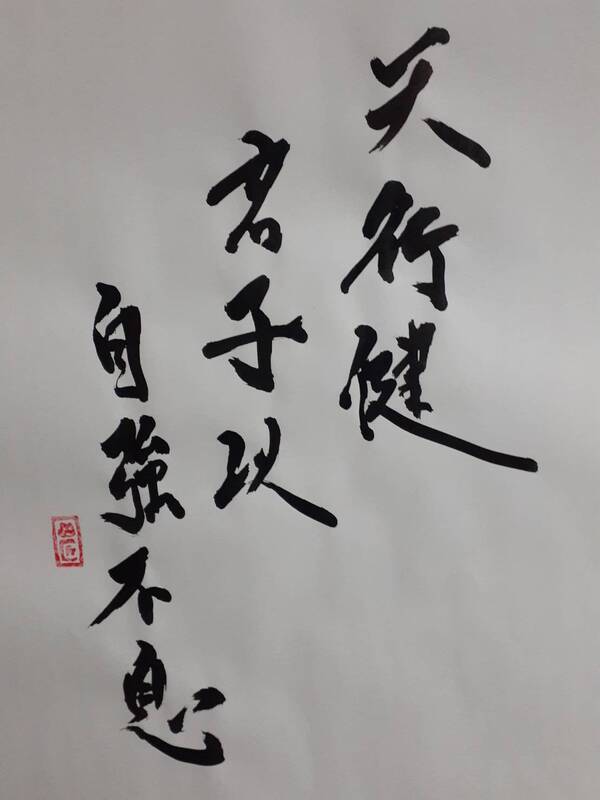 天行健
君子以
自強不息